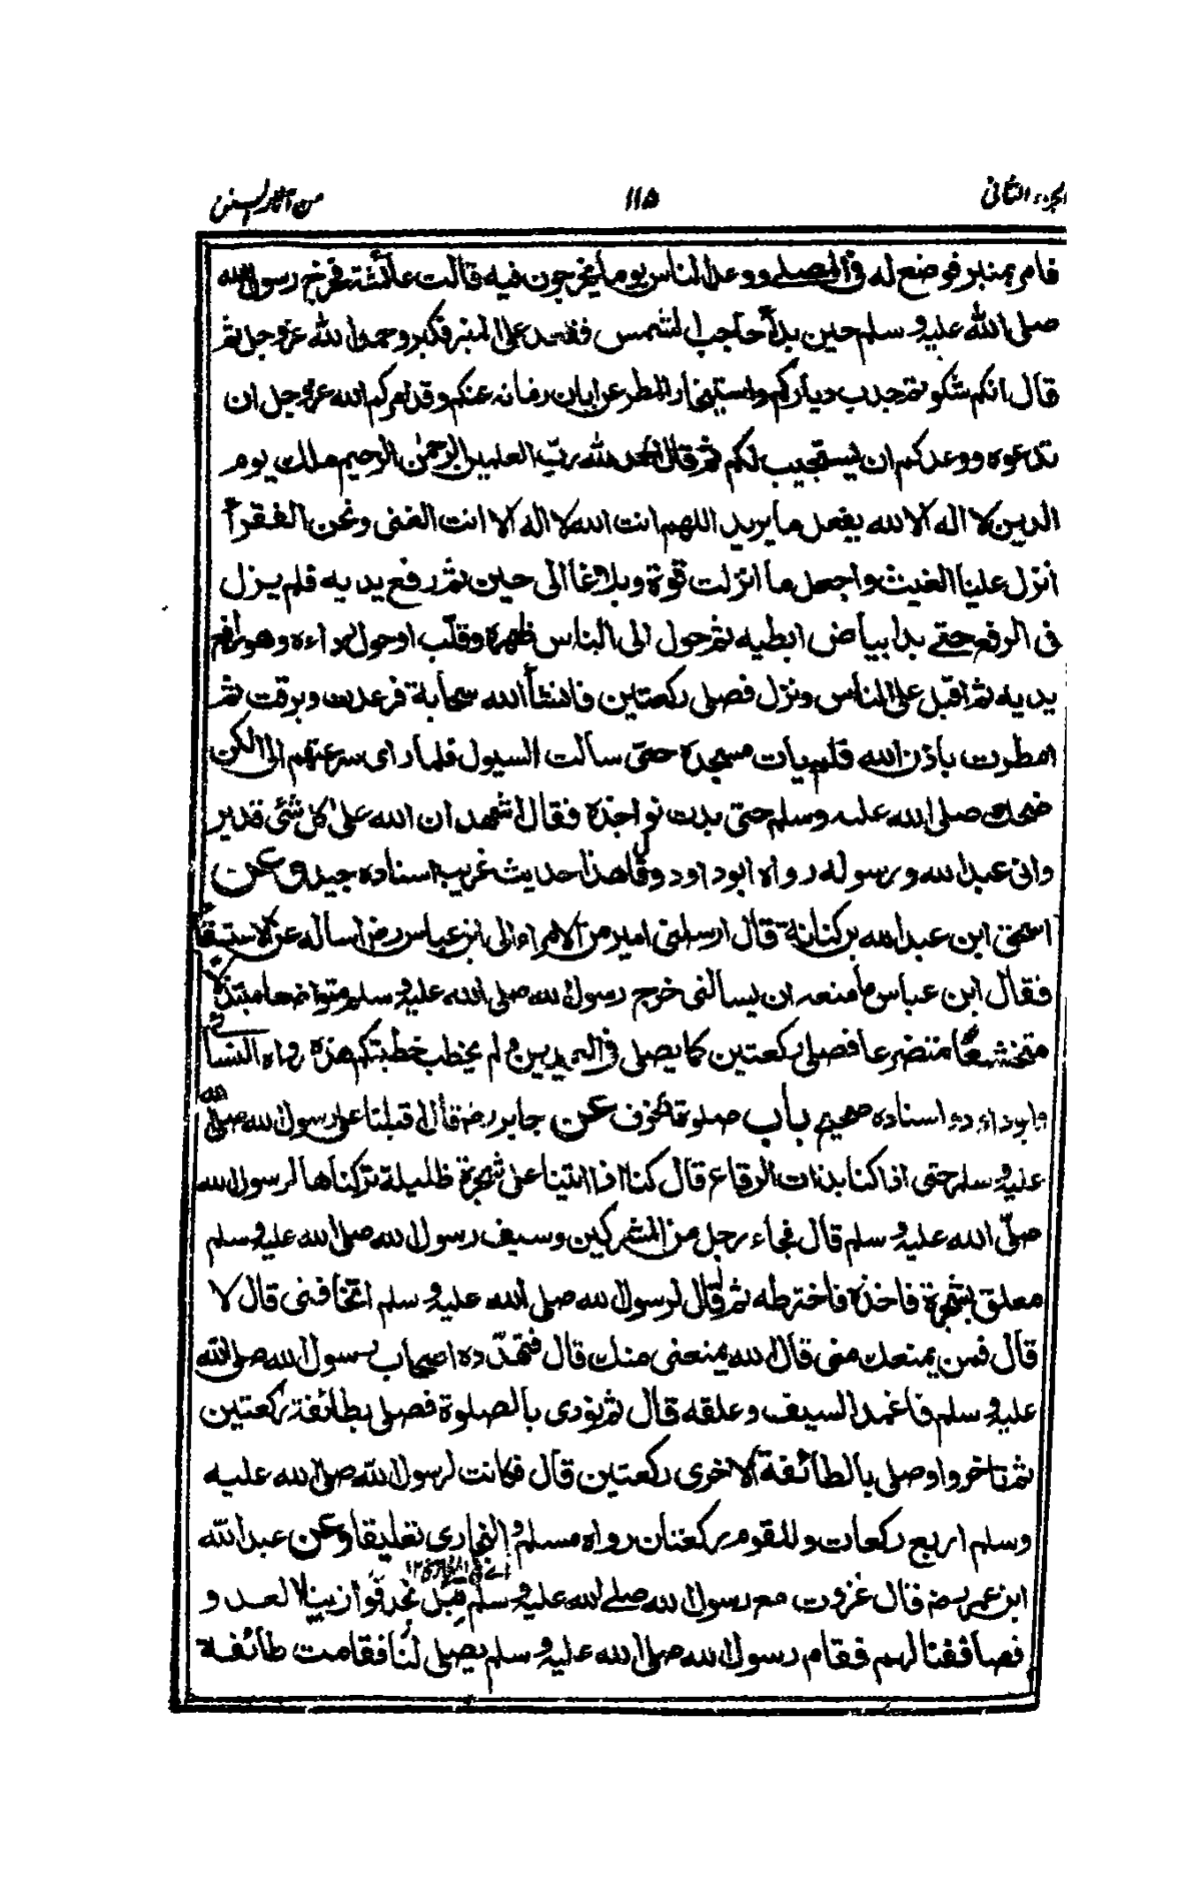 الجزء الثانی ١١٥ من آثار السنن
فامر بمنبر فوضع له فی المصلے ووعد الناس یوما یخرجون فیه قالت عائشة فخرج رسول الله
صلی الله علیه وسلم حین بدأ حاجب الشمس فقعد علی المنبر فکبر وحمد الله عزوجل ثم
قال انکم شکوتم جدب دیارکم واستیخار المطر عن ابان زمانه عنکم وقد امرکم الله عزوجل ان
تدعوه ووعدکم ان یستجیب لکم ثم قال الحمد لله رب العلمین الرحمٰن الرحیم ملك یوم
الدین لا اله الا الله یفعل ما یرید اللهم انت الله لا اله الا انت الغنی ونحن الفقراء
أنزل علینا الغیث واجعل ما انزلت قوة وبلاغا الی حین ثم رفع یدیه فلم یزل
فی الرفع حتے بدا بیاض ابطیه ثم حول الی الناس ظهره وقلّب او حول رداءه وهو رافع
یدیه ثم اقبل علی الناس ونزل فصلی رکعتین فانشأ الله سحابة فرعدت وبرقت ثم
امطرت باذن الله فلم یأت مسجده حتی سالت السیول فلما رای سرعتهم الی الکن
ضحك صلی الله علیه وسلم حتی بدت نواجذه فقال اشهد ان الله علیٰ کل شئی قدیر
وانی عبد الله ورسوله رواه ابو داود وقال هذا حدیث غریب اسناده جید وعن
اسحق ابن عبد الله بن کنانة قال ارسلنی امیر من الامراء الی ابن عباس رض اسأله عن الاستسقاء
فقال ابن عباس ما منعه ان یسالنی خرج رسول الله صلی الله علیه وسلم متواضعا مبتذلا
متخشعًا متضرعا فصلی رکعتین کما یصلی فی العیدین ولم یخطب خطبتکم هذه رواه النسائی
وابوداؤد واسناده صحیح باب صلوة الخوف عن جابر رض قال اقبلنا علی رسول الله صلی الله
علیه وسلم حتی اذا کنا بذات الرقاع قال کنا اذا اتینا علی شجرة ظلیلة ترکناها لرسول الله
صلّی الله علیه وسلم قال فجاء رجل من المشرکین وسیف رسول الله صلی الله علیه وسلم
معلق بشجرة فاخذه فاخترطه ثم قال لرسول الله صلی الله علیه وسلم اتخافنی قال لا
قال فمن یمنعك منی قال الله یمنعنی منك قال فتهدّده اصحاب رسول الله صلی الله
علیه وسلم فاغمد السیف وعلقه قال ثم نودی بالصلوة فصلی بطائفة رکعتین
ثم تاخروا وصلی بالطائفة الاخری رکعتین قال فکانت لرسول الله صلی الله علیه
وسلم اربع رکعات وللقوم رکعتان رواه مسلم والبخاری تعلیقا وعن عبد الله
ابن عمر رض قال غزوت مع رسول الله صلے الله علیه وسلم قِبَل نجد فوازینا العدو
فصاففنا لهم فقام رسول الله صلی الله علیه وسلم یصلی لنا فقامت طائفة